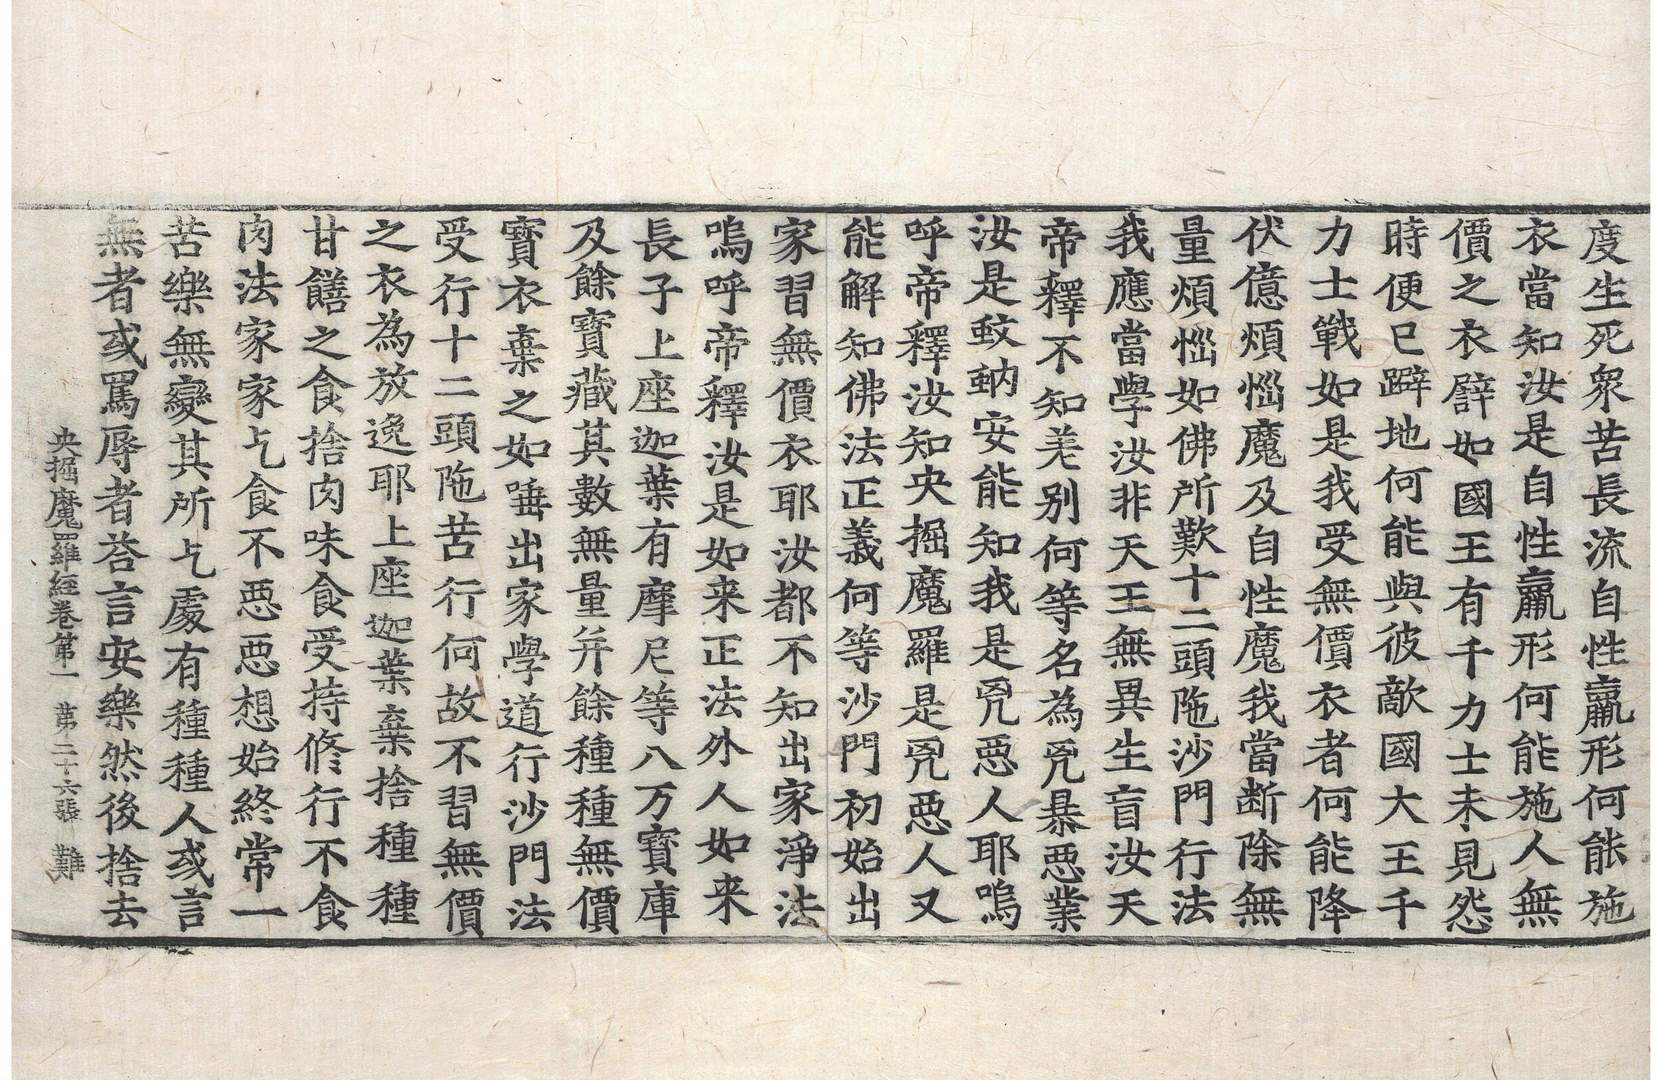 度生死衆苦長流自性羸形何能施
衣當知汝是自性羸形何能施人無
價之衣譬如國王有千力士未見怨
時便已躃地何能與彼敵國大王千
力士戰如是我受無價衣者何能降
伏億煩惱魔及自性魔我當断除無
量煩惱如佛所歎十二頭陁沙門行法
我應當學汝非天王無異生盲汝天
帝釋不知羌别何等名為兇暴惡業
汝是蚊蚋安能知我是兇惡人耶嗚
呼帝釋汝知央掘魔羅是兇惡人又
能解知佛法正義何等沙門初始出
家習無價衣耶汝都不知出家淨法
嗚呼帝釋汝是如来正法外人如来
長子上座迦葉有摩尼等八万寶庫
及餘寶藏其數無量并餘種種無價
寶衣棄之如唾出家學道行沙門法
受行十二頭陁苦行何故不習無價
之衣為放逸耶上座迦葉棄捨種種
甘饍之食捨肉味食受持修行不食
肉法家家乞食不惡惡想始終常一
苦樂無變其所乞處有種種人或言
無者或罵辱者荅言安樂然後捨去
央掘魔羅經卷第一 第二十六張 難